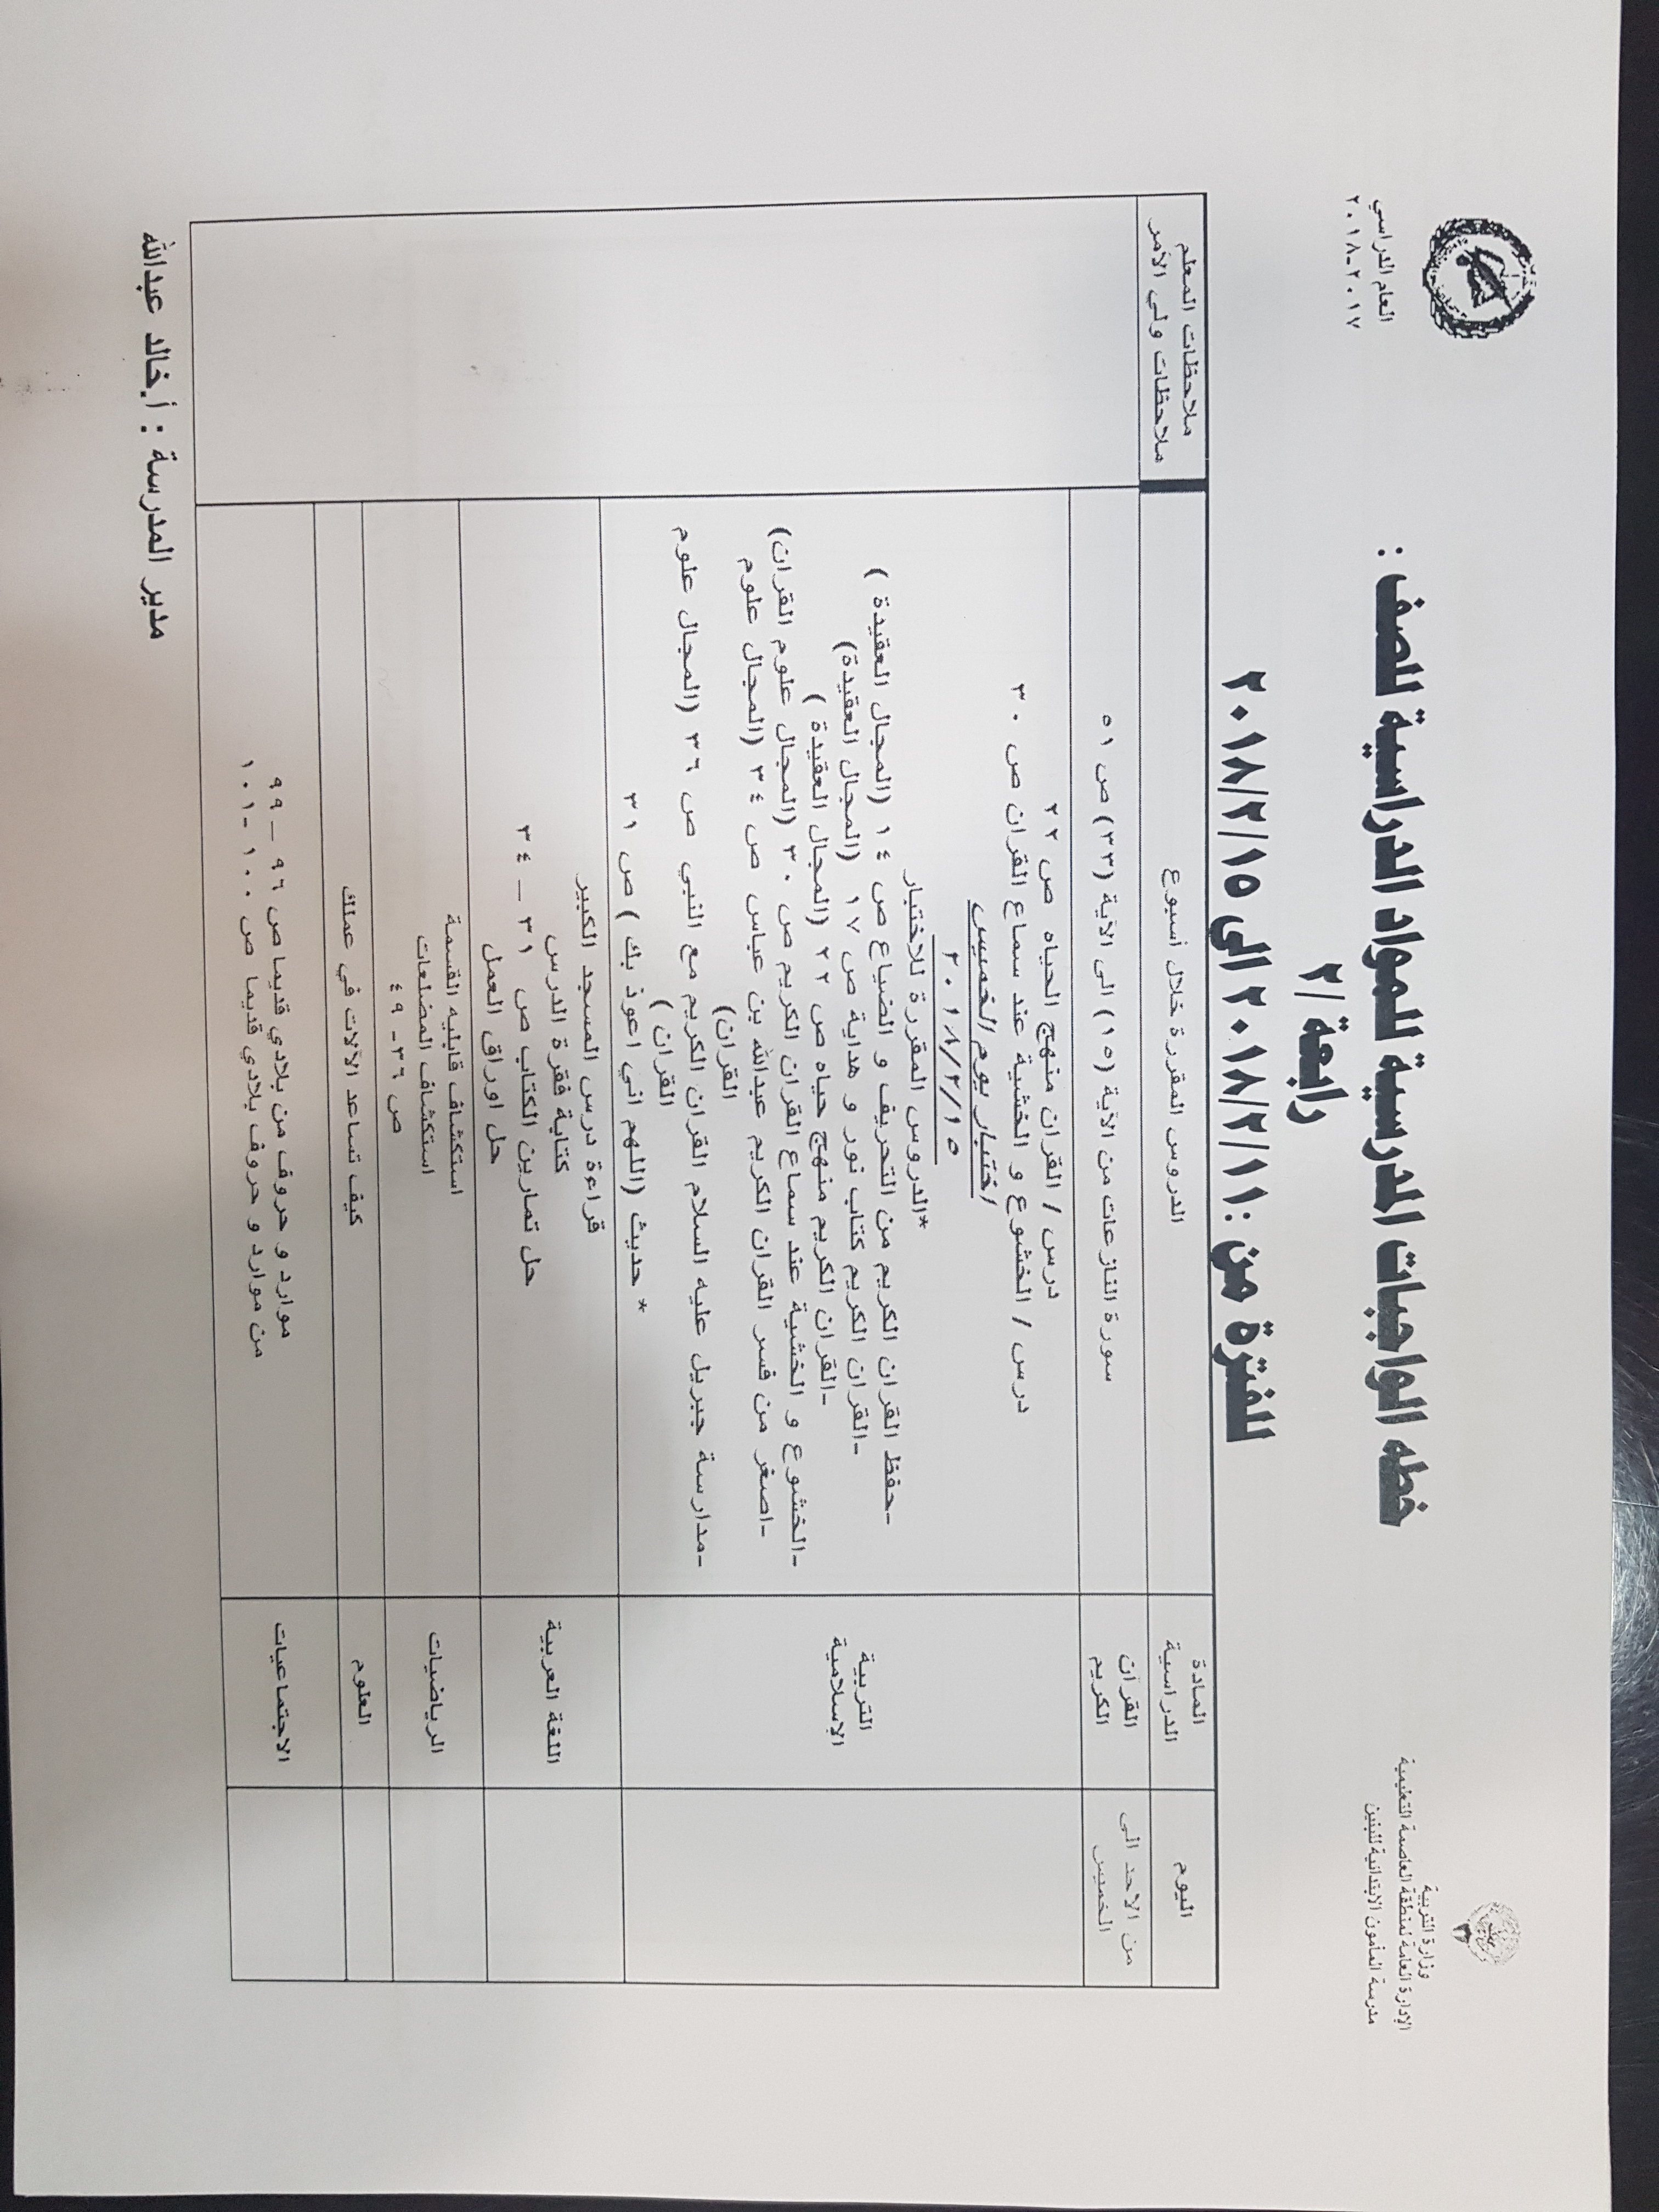 وزارة التربية
الإدارة العامة لمنطقة العاصمة التعليمية
مدرسة المأمون الابتدائية للبنين
العام الدراسي
٢٠١٧-٢٠١٨
خطه الواجبات المدرسية للمواد الدراسية للصف :
رابعة /٢
للفترة من :٢٠١٨/٢/١١ الى ٢٠١٨/٢/١٥
اليوم
المادة
الدراسية
الدروس المقررة خلال أسبوع
ملاحظات المعلم
ملاحظات ولي الأمر
من الاحد الى
الخميس
القرآن
الكريم
سورة النازعات من الآية (١٥) الى الآية (٣٣) ص ٥١
التربية
الإسلامية
درس / القران منهج الحياه ص ٢٢
درس / الخشوع و الخشية عند سماع القران ص ٣٠
اختبار يوم الخميس
٢٠١٨/٢/١٥
*الدروس المقررة للاختبار
-حفظ القران الكريم من التحريف و الضياع ص ١٤ (المجال العقيدة )
-القران الكريم كتاب نور و هداية ص ١٧ (المجال العقيدة)
-القران الكريم منهج حياه ص ٢٢ (المجال العقيدة )
-الخشوع و الخشية عند سماع القران الكريم ص ٣٠ (المجال علوم القران)
-اصغر من فسر القران الكريم عبدالله بن عباس ص ٣٤ (المجال علوم
القران)
-مدارسة جبريل عليه السلام القران الكريم مع النبي ص ٣٦ (المجال علوم
القران )
* حديث (اللهم اني اعوذ بك ) ص ٣١
اللغة العربية
قراءة درس المسجد الكبير
كتابة فقرة الدرس
حل تمارين الكتاب ص ٣١ _ ٣٤
حل اوراق العمل
الرياضيات
استكشاف قابليه القسمة
استكشاف المضلعات
ص ٣٦- ٤٩
العلوم
كيف تساعد الآلات في عملك
الاجتماعيات
موارد و حروف من بلادي قديما ص ٩٦ _ ٩٩
من موارد و حروف بلادي قديما ص ١٠٠ -١٠١
مدير المدرسة : أ.خالد عبدالله